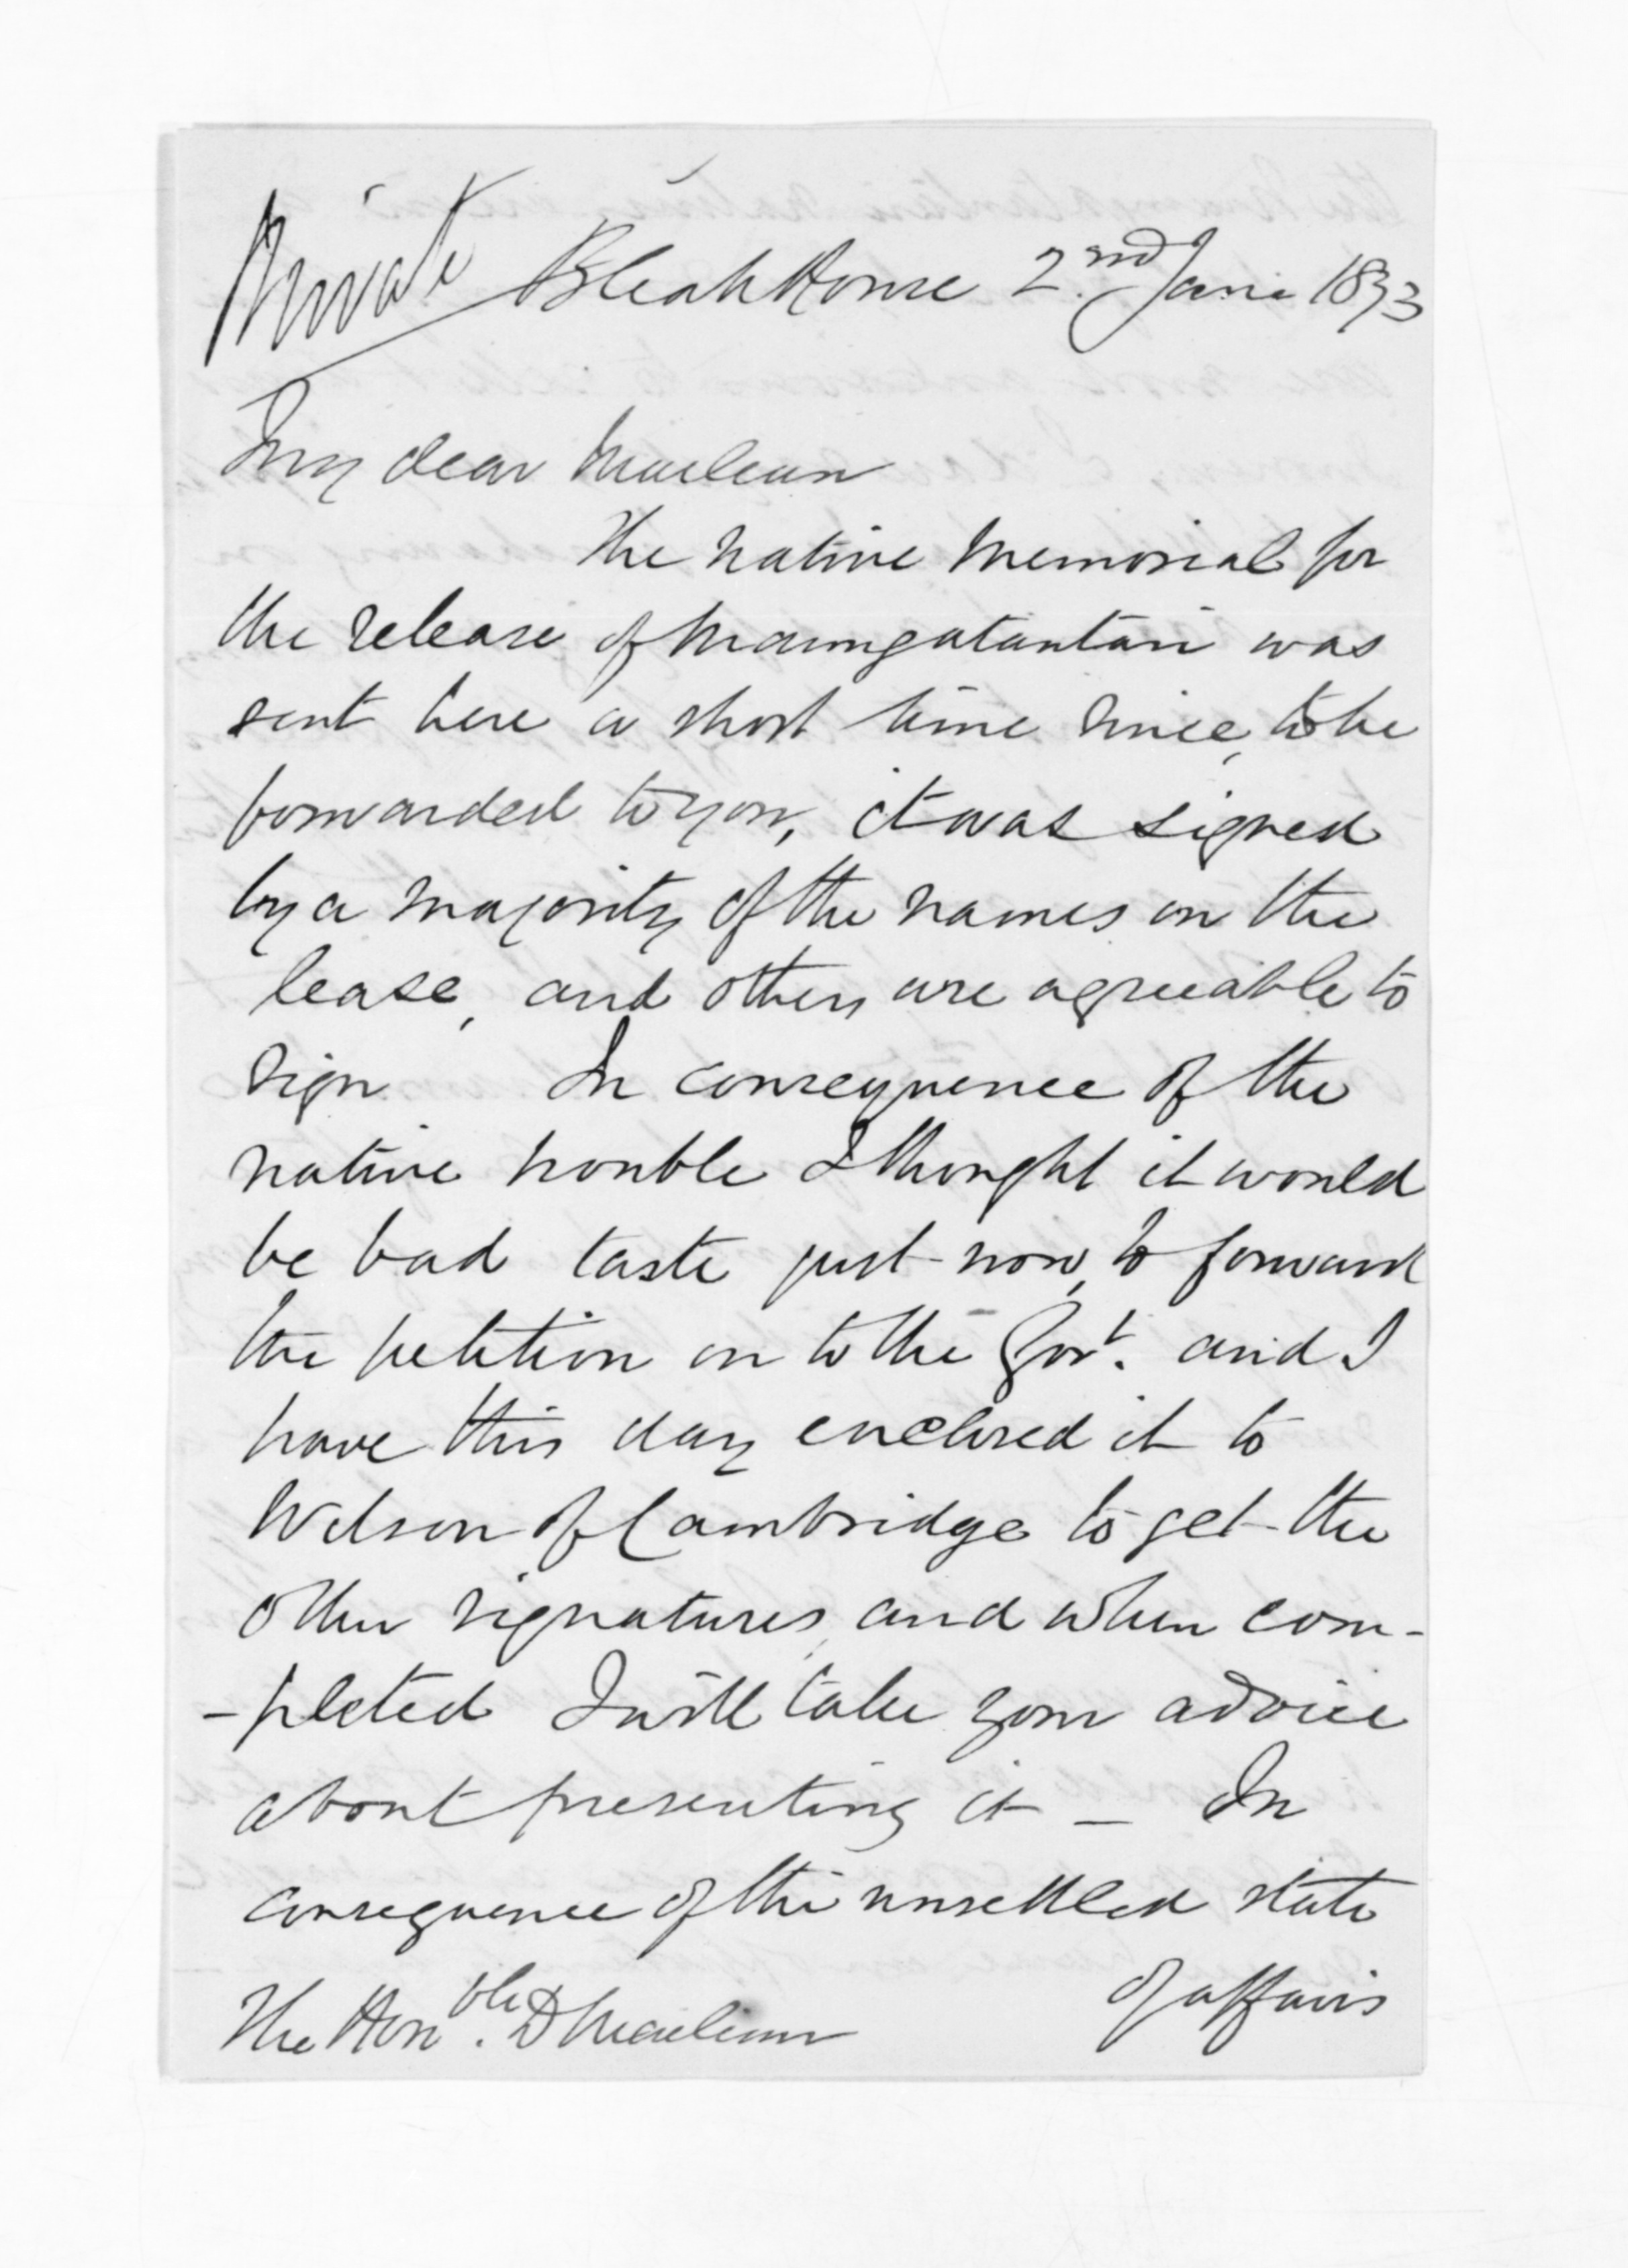 Private Bleak House 2nd June 1873
My dear Maclean
The native Memorial for
the release of Maungatautari was
sent here a short time since, to be
forwarded to you, it was signed
by a majority of the names on the
lease, and others are agreeable to
sign In consequence of the
native trouble I thought it would
be bad taste just now, to forward
the petition on to the Govt. and I
have this day enclosed it to
Wilson of Cambridge to get the
other signatures, and when com-
-pleted I will take your advice
about presenting it — In
consequence of the unsettled state
of affairs
The Honble. D Maclean